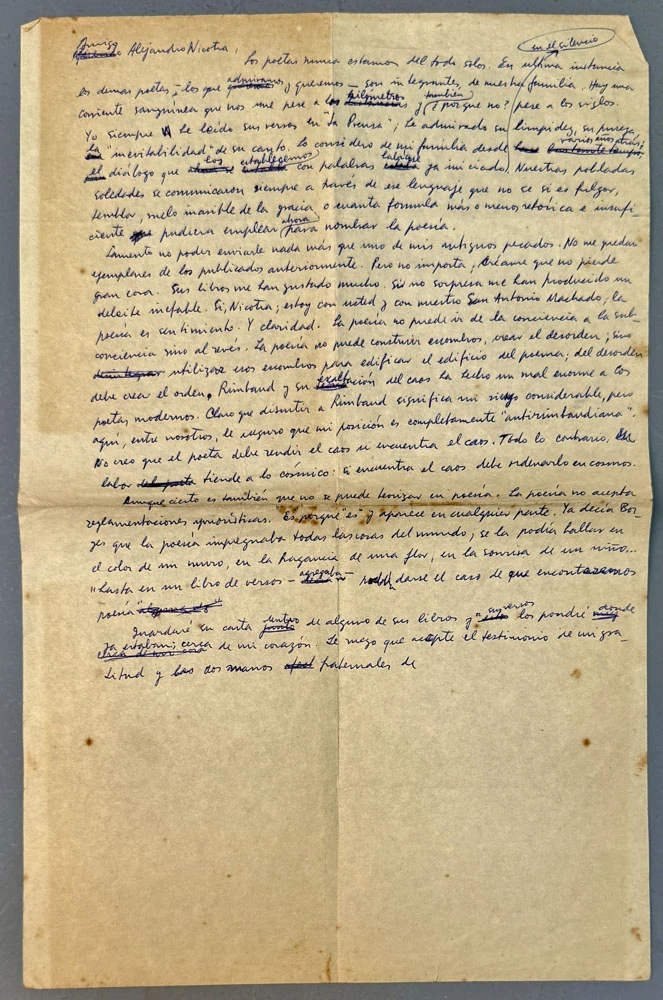 Amigo Alejandro Nicotra,
en el silencio
Los poetas nunca estamos del todo solos. En ultima instancia
los demas poetas, –los que admiramos y queremos– son integrantes de nuestra familia. Hay una
corriente sanguínea que nos une pese a los kilometros y (¿porque no? también) pese a los siglos.
Yo siempre he leído sus versos en "La Prensa"; he admirado su limpidez, su pureza,
la "inevitabilidad" de su canto. Lo considero de mi familia desde varios años atrás;
el diálogo que los establecemos con palabras ya iniciado. Nuestras pobladas
soledades se comunicaron siempre a través de ese lenguaje que no se si es fulgor,
temblor, vuelo inasible de la gracia o cuanta formula más o menos retórica e insufi-
ciente pudiera emplear ahora para nombrar la poesía.
Lamento no poder enviarle nada más que uno de mis antiguos pecados. No me quedan
ejemplares de los publicados anteriormente. Pero no importa; créame que no pierde
gran cosa. Sus libros me han gustado mucho. Sis no sorpresa me han producido un
deleite inefable. Si, Nicotra; estoy con usted y con nuestro San Antonio Machado; la
poesía es sentimiento. Y claridad. La poesía no puede ir de la conciencia a la sub-
conciencia sino al revés. La poesía no puede construir escombros, crear el desorden; sino
utilizar esos escombros para edificar el edificio del poema; del desorden
debe crear el orden. Rimbaud y su exaltación del caos ha hecho un mal enorme a los
poetas modernos. Claro que discutir a Rimbaud significa mi riesgo considerable, pero
aquí, entre nosotros, le aseguro que mi posición es completamente "antirimbaudiana".
No creo que el poeta debe rendir el caos si encuentra el caos. Todo lo contrario. Su
labor tiende a lo cósmico: si encuentra el caos debe ordenarlo en cosmos.
Aunque cierto es también que no se puede teorizar en poesía. La poesía no acepta
reglamentaciones apriorísticas. Es porque "es" y aparece en cualquier parte. Ya decía Bor-
ges que la poesía impregnaba todas las cosas del mundo; se la podía hallar en
el color de un muro, en la fragancia de una flor, en la sonrisa de un niño...
"hasta en un libro de versos –agregaba– podría darse el caso de que encontraremos
poesía"
Guardaré su carta dentro de alguno de sus libros y a sus versos los pondré donde
ya estaban; cerca de mi corazón. Le ruego que acepte el testimonio de mi gra-
titud y las dos manos fraternales de